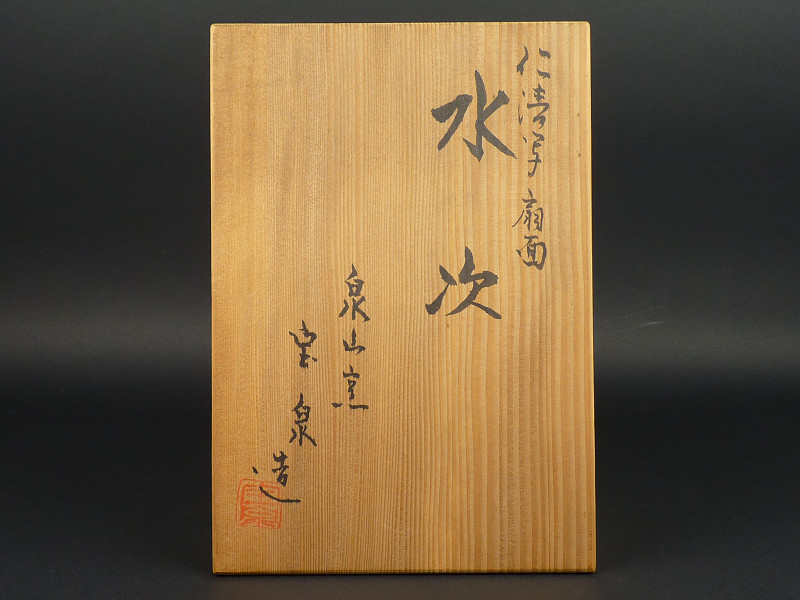 仁清写 扇面
水次
泉山窯
宝泉造